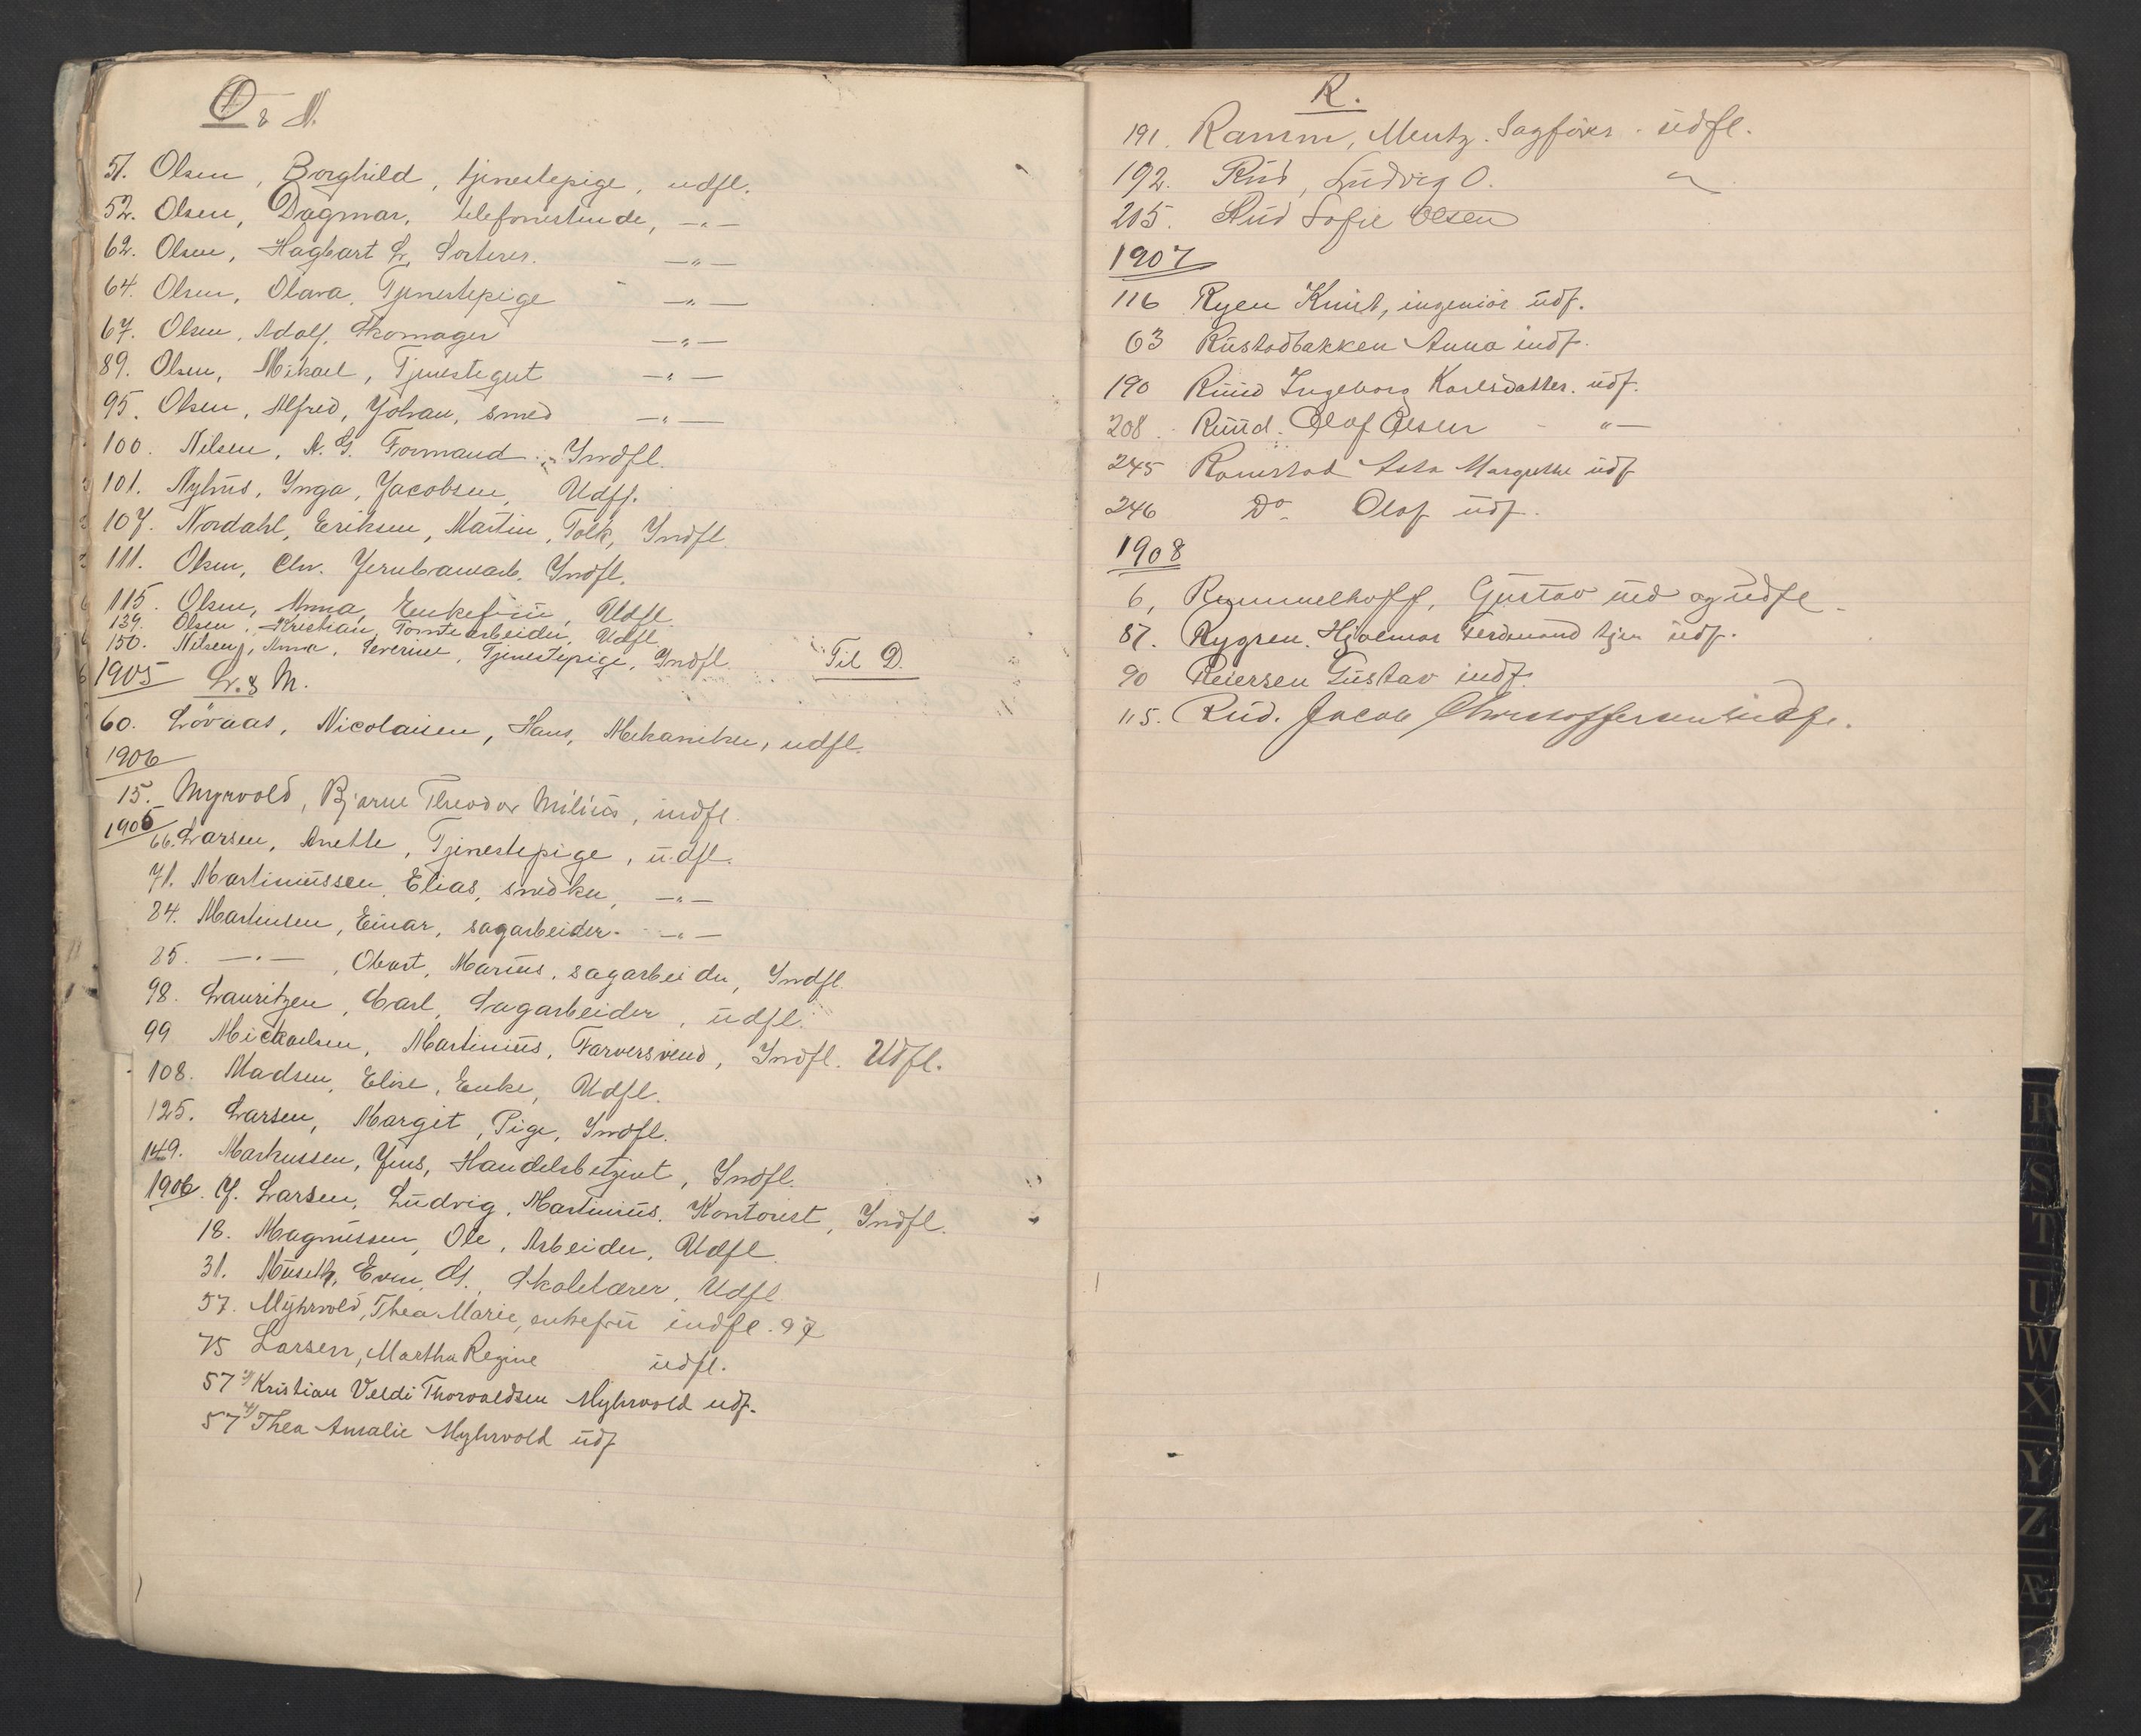 O & N.
51. Olsen, Borghild, tjenestepige, udfl.
52. Olsen, Dagmar, telefonistinde, —"—
62. Olsen, Hagbart L. Sorterer. —"—
64. Olsen, Olava, Tjenestepige —"—
67. Olsen, Adolf, Skomager —"—
89. Olsen, Mikael, Tjenestegut —"—
95. Olsen, Alfred, Johan, smed —"—
100. Nilsen, A. G. Formand Indfl.
101. Nyhus, Inga, Jacobsen, Udfl.
107. Nordahl, Eriksen, Martin, Tolk, Indfl.
111. Olsen, Chr. Jernbanearb. Indfl.
115. Olsen, Anna, Enkefrü, Udfl.
139. Olsen, Kristian, Tomtearbeider, Udfl.
150. Nilsen, Anna, Severine, Tjenestepige, Indfl. Til D.
1905 L. & M.
60. Lövaas, Nicolaisen, Hans, Mekaniker, udfl.
1906
15. Myrvold, Bjarne Theodor Milius, indfl.
1905
66. Larsen, Anette, Tjenestepige, udfl.
71. Martinussen, Elias, snedker, —"—
84. Martinsen, Einar, sagarbeider. —"—
85. —"—, Obert, Marius, sagarbeider, Indfl.
98. Lauritzen, Carl, Sagarbeider, udfl.
99 Mickaelsen, Martinius, Farversvend, Indfl. Udfl.
108. Madsen, Elise, Enke, Udfl.
125. Larsen, Margit, Pige, Indfl.
149. Markussen, Jens, Handelsbetjent, Indfl.
1906. 7. Larsen, Ludvig, Martinius, Kontorist, Indfl.
18. Magnussen, Ole, Arbeider, Udfl.
31. Museth, Even, Skolelærer, Udfl.
57. Myhrvold, Thea Marie, enkefrü indfl.
75 Larsen, Martha Regine udfl.
57 Kristian Veldi Thorvaldsen Myhrvold udf.
57 Thea Amalie Myhrvold udf
R.
191. Ramm, Mentz. Sagförer. udfl.
192. Rud, Ludvig O. "
205. Rud Sofie Olsen
1907
116 Ryen Knut, ingeniör udf.
63 Rustadbakken Anna indf.
190 Ruud Ingeborg Karlsdatter. udf.
208. Ruud. Olof Olsen - "—
245 Ramstad Asta Margrethe udf
246 Do Olaf udf.
1908
6, Rummelhoff, Gustav ind og udfl.
87. Rygren. Hjalmar Ferdinand tjen udf.
90 Reiersen Gustav indf.
115. Rud. Jacob Christoffersen indfl.
R
S
T
U
W
X
Y
Z
Æ